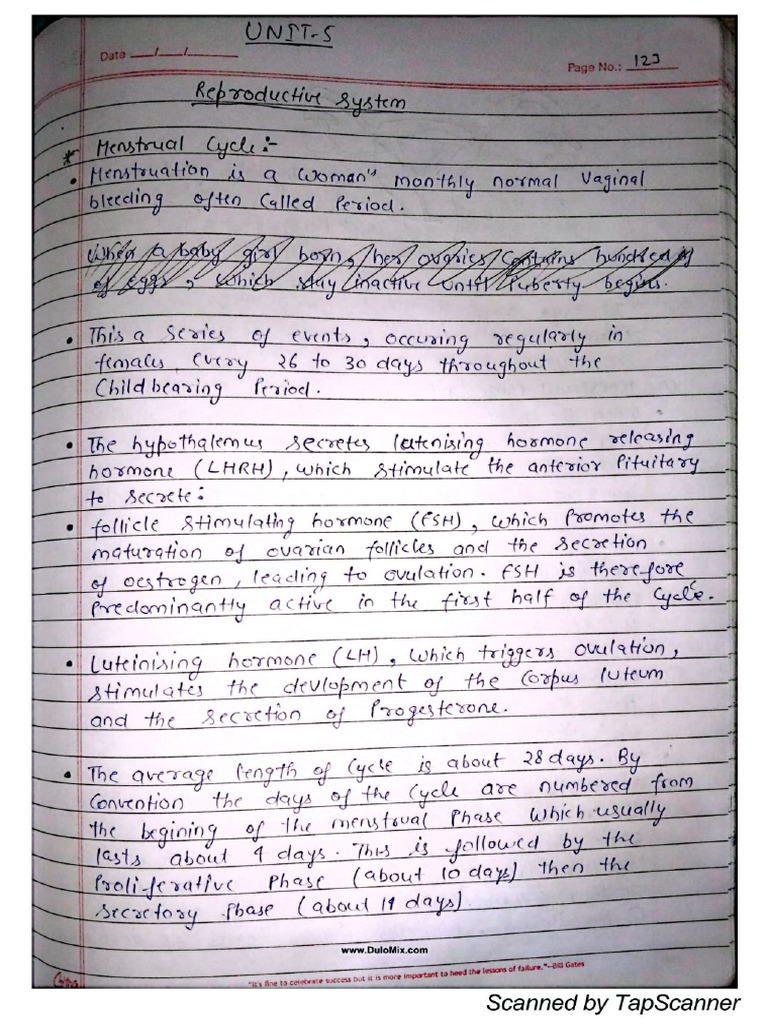 UNIT-5
Date __/__/____
Page No.: 123
Reproductive System
* Menstrual Cycle:-
• Menstruation is a woman's monthly normal vaginal
bleeding often called Period.
When a baby girl born, her ovaries contains hundred of
of eggs, which stay inactive until Puberty begins.
• This a series of events, occuring regularly in
females every 26 to 30 days throughout the
Childbearing Period.
• The hypothalemus secretes lutenising hormone releasing
hormone (LHRH), which stimulate the anterior Pituitary
to secrete:
• follicle stimulating hormone (FSH), which Promotes the
maturation of ovarian follicles and the secretion
of oestrogen, leading to ovulation. FSH is therefore
Predominantly active in the first half of the Cycle.
• Luteinising hormone (LH), which triggers ovulation,
stimulates the devlopment of the Corpus luteum
and the secretion of Progesterone.
• The average length of Cycle is about 28 days. By
Convention the days of the Cycle are numbered from
the begining of the menstrual Phase which usually
lasts about 4 days. This is followed by the
Proliferative Phase (about 10 days) then the
Secretory Phase (about 14 days)
www.DuloMix.com
"It's fine to celebrate success but it is more important to heed the lessons of failure."–Bill Gates
Scanned by TapScanner